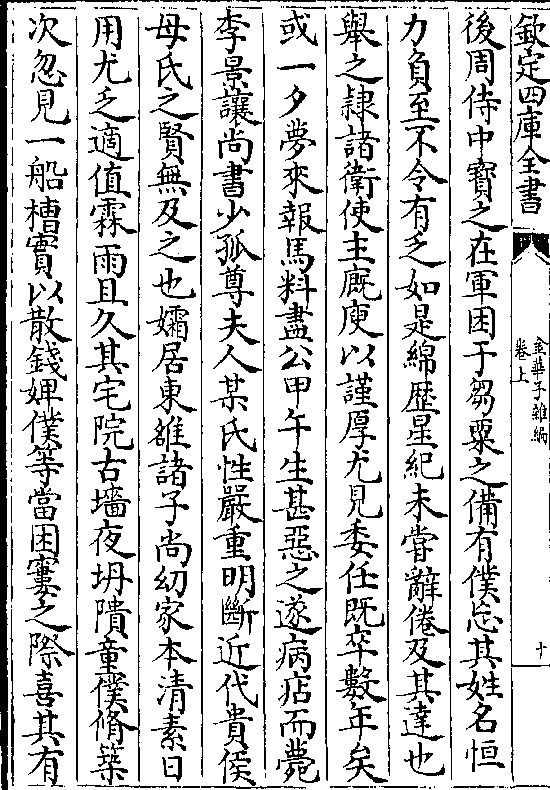 欽定四庫全書
金華子雜編
卷上
十
後周侍中寳之在軍困于芻粟之備有僕忘其姓名恒
力負至不令有乏如是綿歴星紀未嘗辭倦及其達也
舉之隸諸衛使主廐庾以謹厚尤見委任既卒數年矣
或一夕夢來報馬料盡公甲午生甚惡之遂病店而薨
李景讓尚書少孤尊夫人某氏性嚴重明斷近代貴侯
母氏之賢無及之也孀居東雒諸子尚幼家本清素日
用尤乏適值霖雨且久其宅院古墻夜坍隤童僕脩築
次忽見一船槽實以散錢婢僕等當困窶之際喜其有